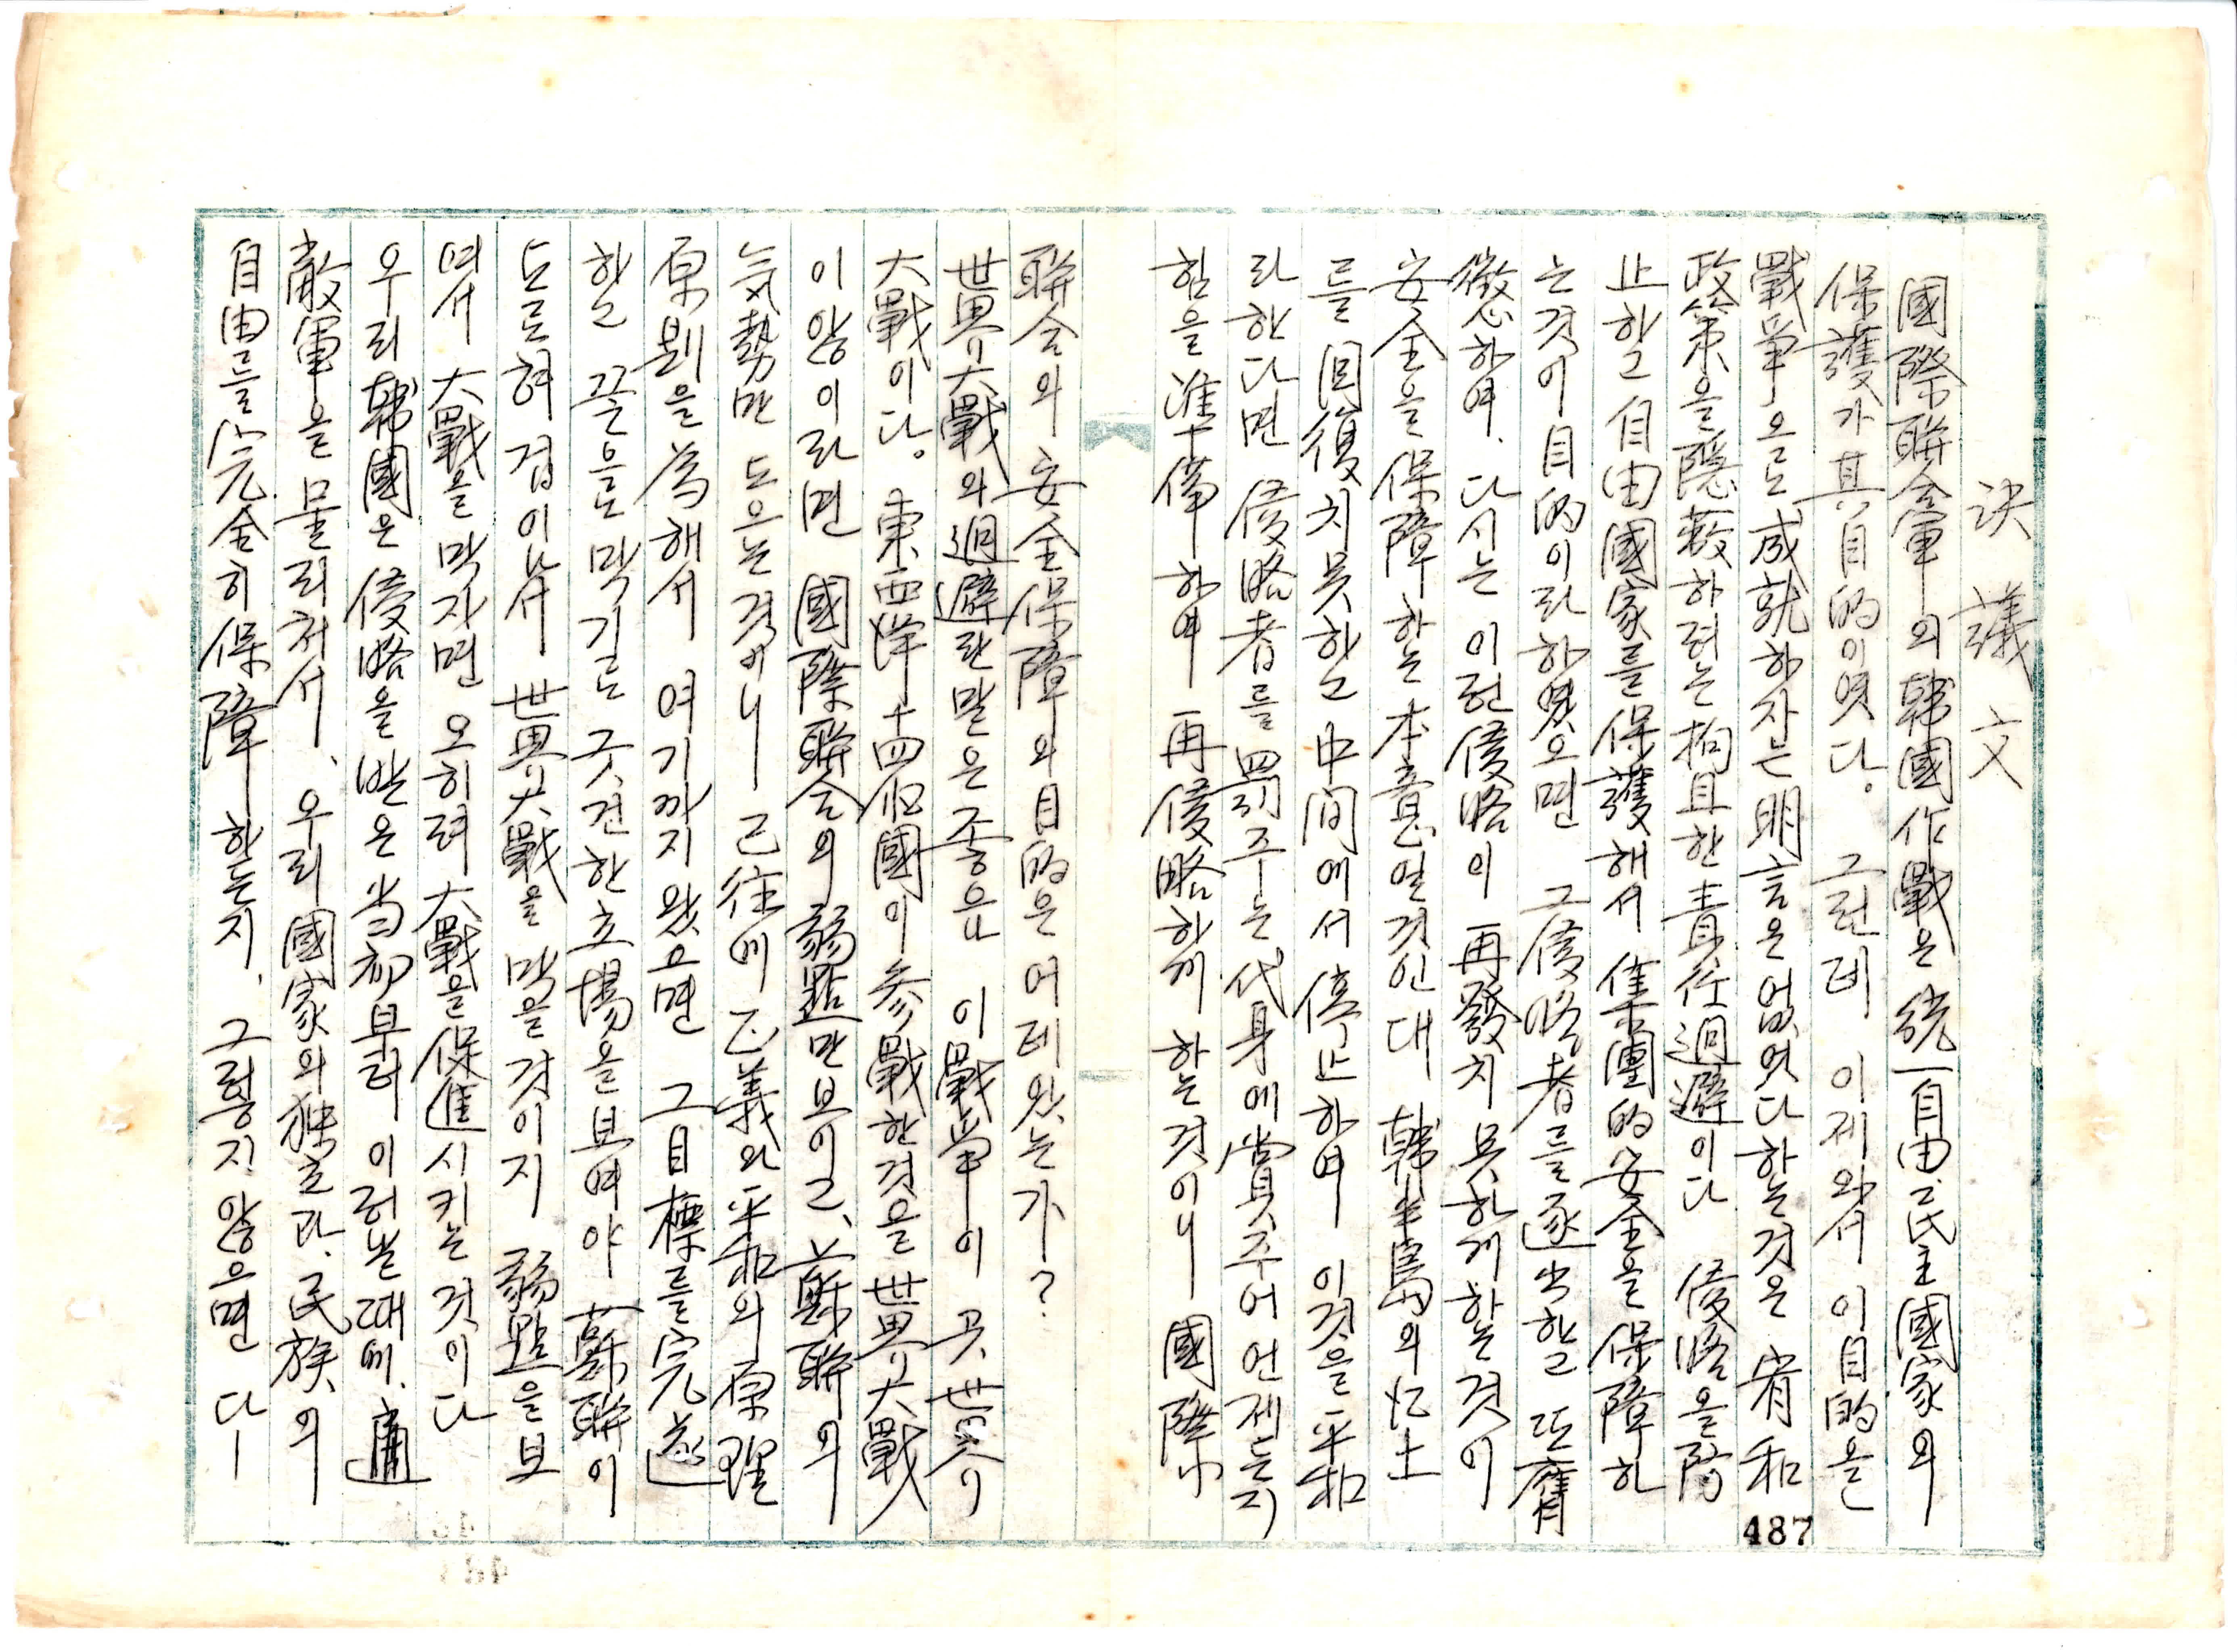 決議文
國際聯合軍의 韓國作戰은 統一自由民主國家의
保護가 其目的이엿다. 그런데 이제와서 이目的을
戰爭으로 成就하자는 明言은 업섯다하는것은 宥和
政策을 隱蔽하려는 拘且한 責任廻避이다 侵略을 防
止하고 自由國家를 保護해서 集團的安全을 保障하
는것이 目的이라 하엿으면 그侵略者를 逐出하고 또 膺
懲하여, 다시는 이런侵略이 再發치 못하게하는것이
安全을 保障하는 本意일것인대 韓半島의 失土
를 回復치못하고 中間에서 停止하여 이것을 平和
라한다면 侵略者를 罰주는 代身에 賞주어 언제든지
힘을 準備하여 再侵略하게 하는것이니 國際
聯合의 安全保障의 目的은 어데있는가?
世界大戰의 迴避란말은 좋으나 이戰爭이 곳 世界
大戰이다. 東西洋十四個國이 參戰한것을 世界大戰
이않이라면 國際聯合의 弱點만 보이고, 蘇聯의
氣勢만 도으는것이니 己往에 正義와 平和의 原理
原則을 爲해서 여기까지 왔으면 그目標를 完遂
하고 끝으로 막기로 굿건한 立場을 보여야 蘇聯이
도로혀 겁이나서 世界大戰을 막을것이지 弱點을 보
여서 大戰을 막자면 오히려 大戰을 促進시키는 것이다
우리 韓國은 侵略을 받은 当初부터 이러날때에, 適
敵軍을 물리처서, 우리 國家의 独立과, 民族의
自由를 完全히 保障하든지, 그렇지 않으면 다—
487